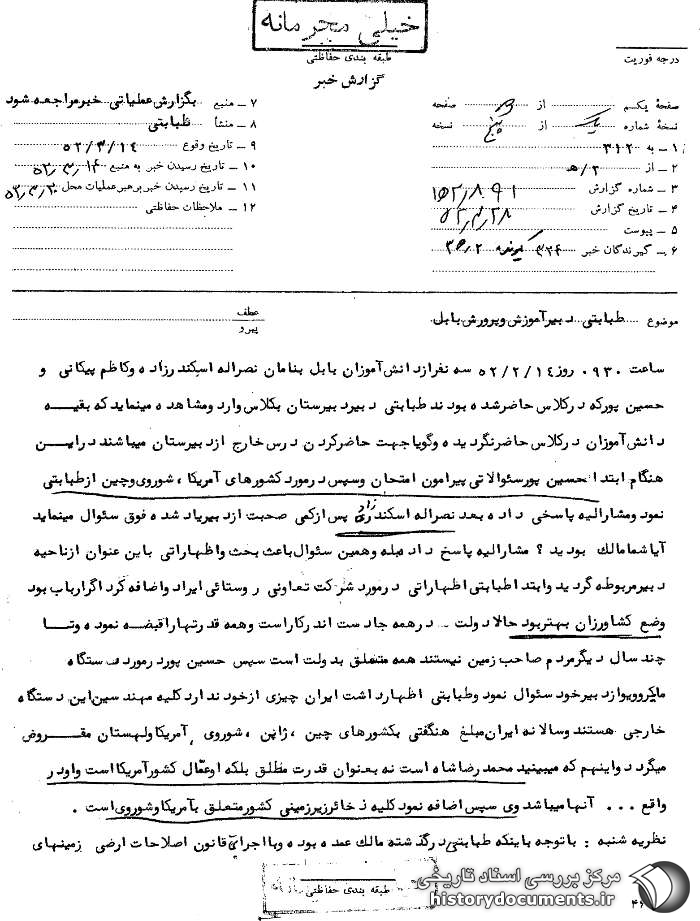 خیلی محرمانه
طبقه بندی حفاظتی
گزارش خبر
درجه فوریت
صفحهٔ یکم از صفحه
نسخهٔ شماره یک از پنج نسخه
۱ ـ به ۳۱۲
۲ ـ از ۲/ﻫ
۳ ـ شماره گزارش
۴ ـ تاریخ گزارش
۵ ـ پیوست
۶ ـ گیرندگان خبر
۷ ـ منبع بگزارش عملیاتی خبر مراجعه شود
۸ ـ منشأ طبابتی
۹ ـ تاریخ وقوع ۵۲/۲/۱۴
۱۰ ـ تاریخ رسیدن خبر به منبع
۱۱ ـ تاریخ رسیدن خبر برهبر عملیات محل
۱۲ ـ ملاحظات حفاظتی
موضوع طبابتی دبیر آموزش و پرورش بابل
عطف
پیرو
ساعت ۰۹۳۰ روز ۵۲/۲/۱۴ سه نفر از دانش آموزان بابل بنامان نصراله اسکندرزاده و کاظم پیکانی و
حسین پور که در کلاس حاضر شده بودند طبابتی دبیر دبیرستان بکلاس وارد و مشاهده مینماید که بقیه
دانش آموزان در کلاس حاضر نگردیده و گویا جهت حاضر کردن درس خارج از دبیرستان میباشند در این
هنگام ابتدا حسین پور سئوالاتی پیرامون امتحان و سپس در مورد کشورهای آمریکا ، شوروی و چین از طبابتی
نمود و مشارالیه پاسخی داده بعد نصراله اسکندرزاده پس از کمی صحبت از دبیر یاد شده فوق سئوال مینماید
آیا شما مالک بودید ؟ مشارالیه پاسخ داد بله و همین سئوال باعث بحث و اظهاراتی باین عنوان از ناحیه
دبیر مربوطه گردید و ابتدا طبابتی اظهاراتی در مورد شرکت تعاونی روستائی ایراد و اضافه کرد اگر ارباب بود
وضع کشاورزان بهتر بود حالا دولت در همه جا دست اندرکار است و همه قدرتها را قبضه نموده و تا
چند سال دیگر مردم صاحب زمین نیستند همه متعلق بدولت است سپس حسین پور در مورد دستگاه
مایکروویو از دبیر خود سئوال نمود و طبابتی اظهار داشت ایران چیزی از خود ندارد کلیه مهندسین این دستگاه
خارجی هستند و سالانه ایران مبلغ هنگفتی بکشورهای چین ، ژاپن ، شوروی ، آمریکا و لهستان مقروض
میگردد و اینهم که میبینید محمدرضا شاه است نه بعنوان قدرت مطلق بلکه او عمّال کشور آمریکا است و او در
واقع ... آنها میباشد وی سپس اضافه نمود کلیه ذخائر زیرزمینی کشور متعلق بآمریکا و شوروی است .
نظریه شنبه : با توجه باینکه طبابتی در گذشته مالک عمده بوده و با اجرای قانون اصلاحات ارضی زمینهای
طبقه بندی حفاظتی
مرکز بررسی اسناد تاریخی
historydocuments.ir